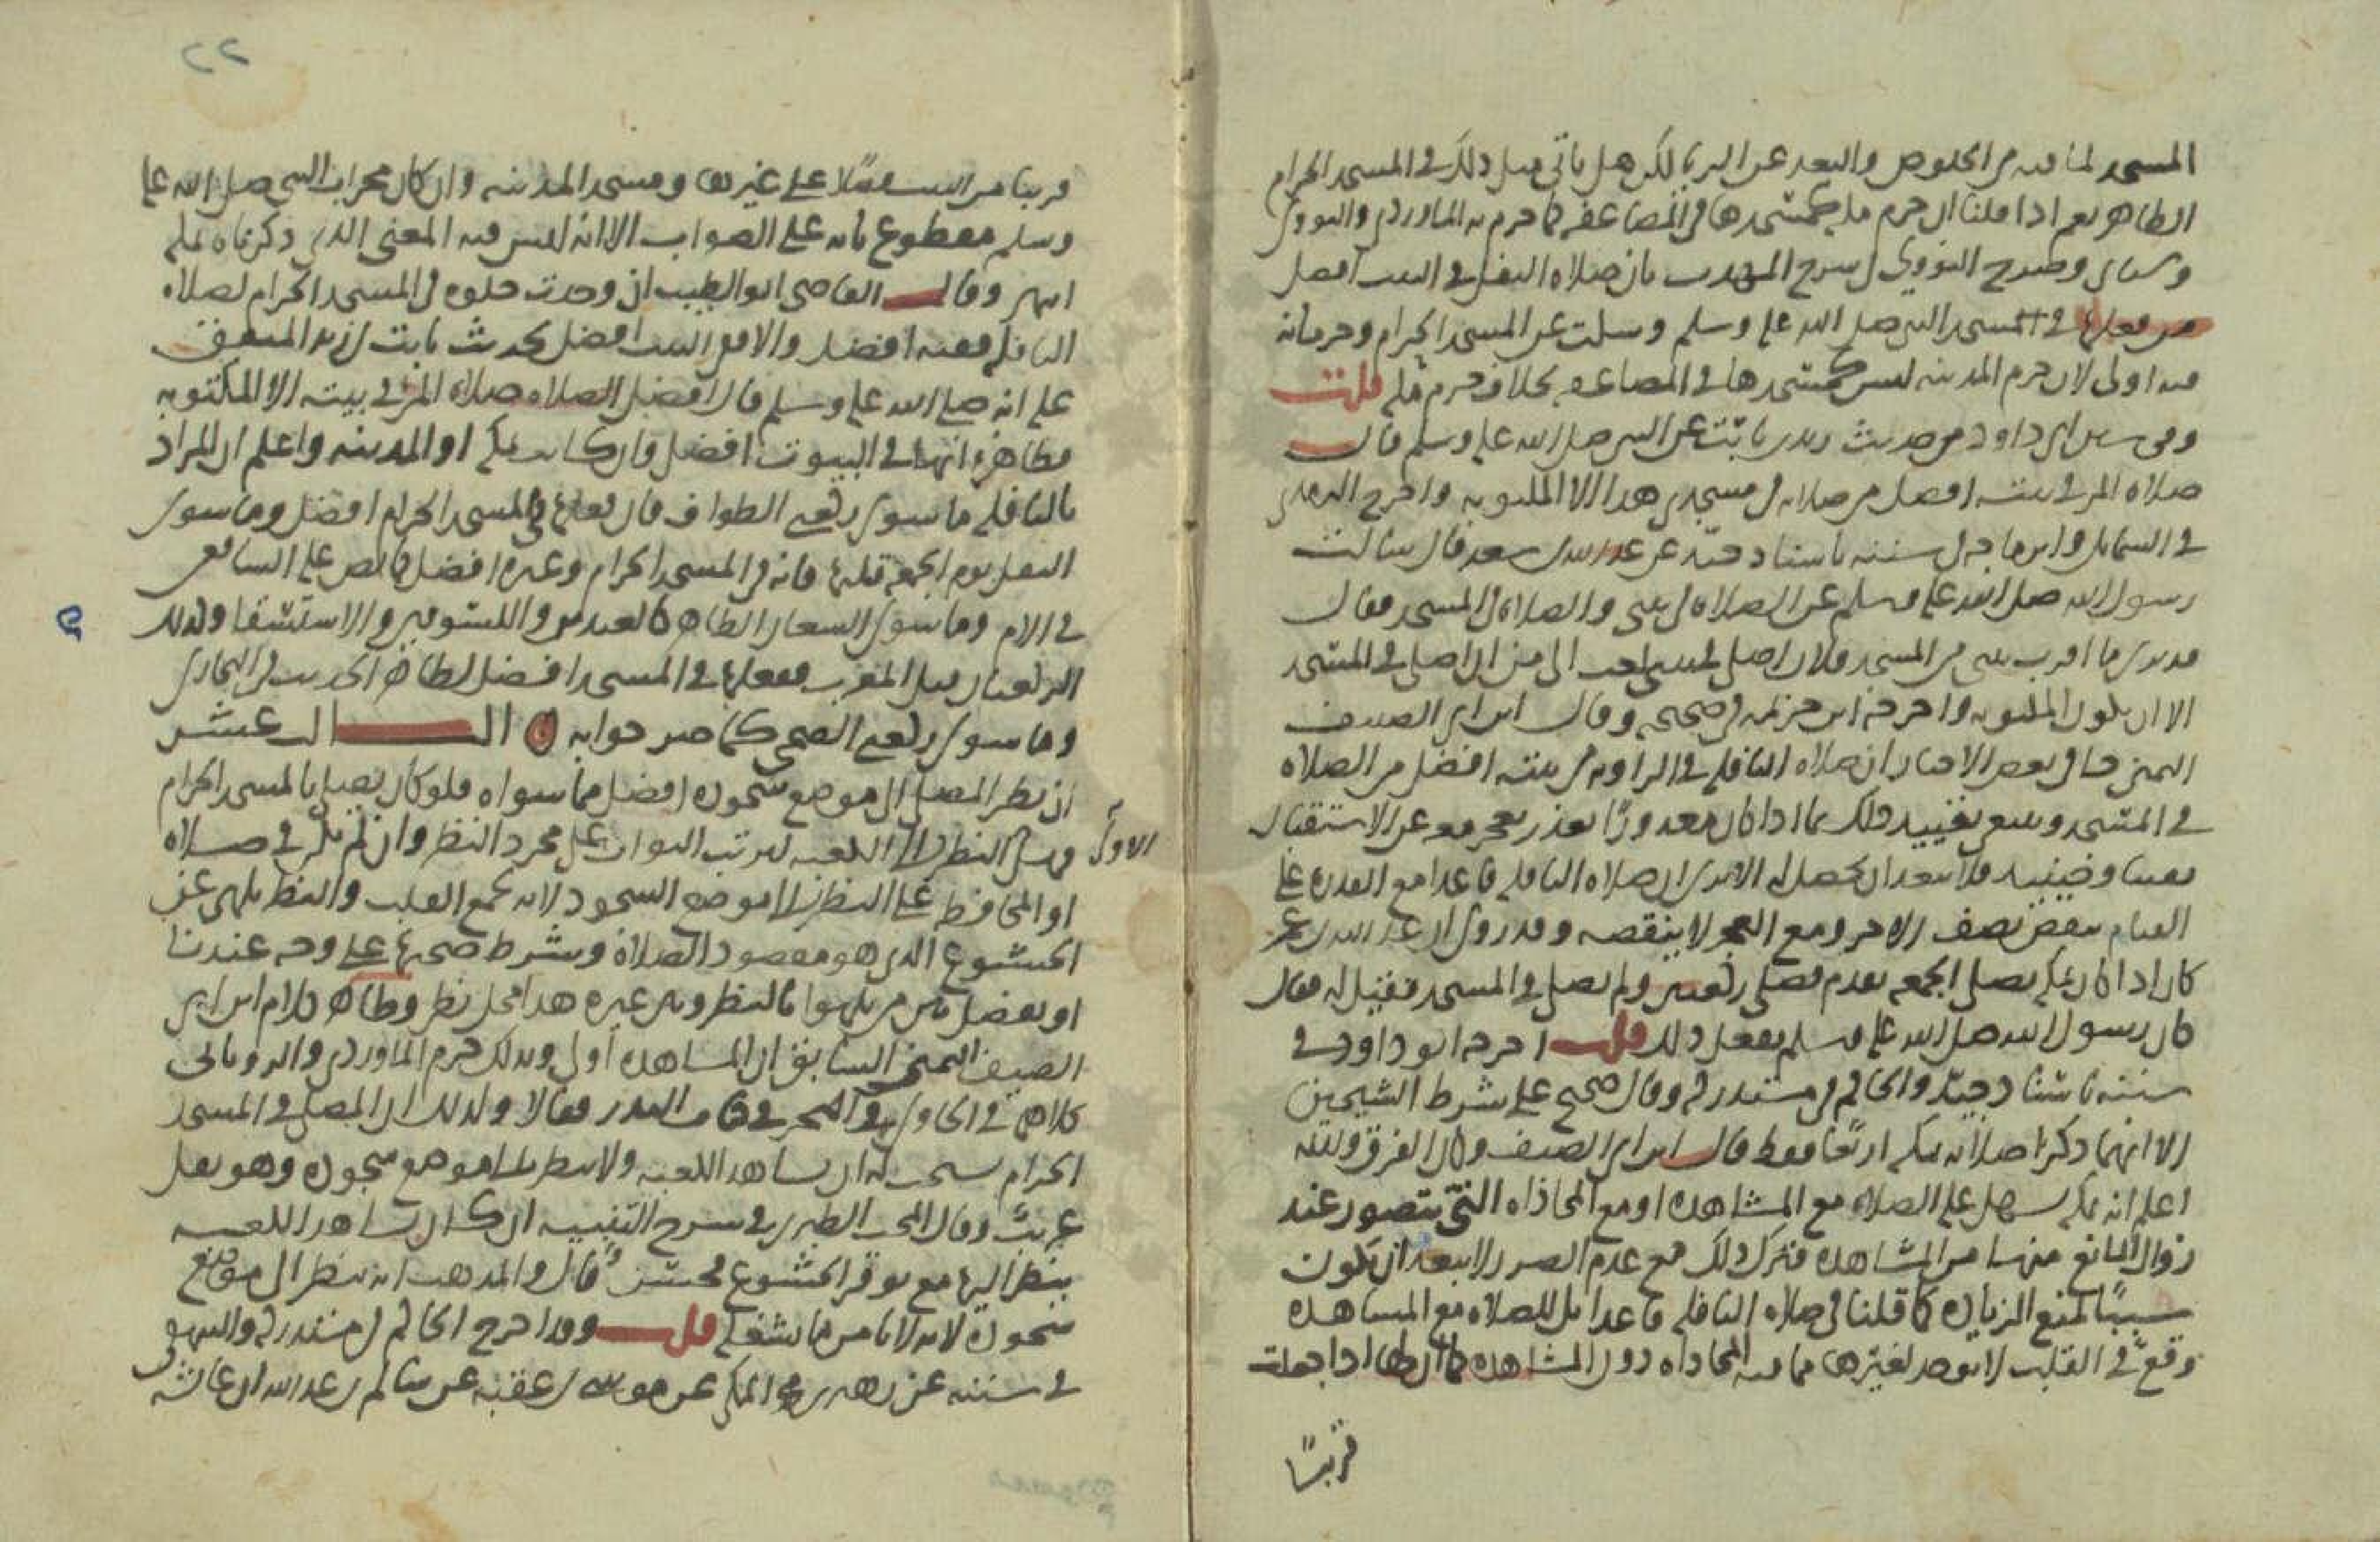 المسجد لما فيه من الخلوص والبعد عن الريا لكن هل ياتي مثل ذلك في المسجد الحرام
الظاهر نعم اذا قلنا ان حرم مكه كمسجدها في المضاعفه كما جزم به الماوردي والنووي
وصرح النووي في شرح المهذب بان صلاه النفل في البيت افضل
من فعلها في المسجد النبي صلى الله عليه وسلم وسكت عن المسجد الحرام وحرمانه
منه اولى لان حرم المدينه ليس كمسجدها في المضاعفه بخلاف حرم مكه قلت
وفي سنن ابي داود من حديث زيد بن ثابت عن النبي صلى الله عليه وسلم قال
صلاه المرء في بيته افضل من صلاته في مسجدي هذا الا المكتوبه واخرج الترمذي
في الشمايل وابن ماجه في سننه باسناد جيد عن عبد الله بن سعد قال سالت
رسول الله صلى الله عليه وسلم عن الصلاه في بيتي والصلاه في المسجد فقال
قد ترى ما اقرب بيتي من المسجد فلان اصلي في بيتي احب الى من ان اصلي في المسجد
الا ان تكون المكتوبه واخرجه ابن خزيمه في صحيحه وقال ابن ابي الصيف
اليمني جا في بعض الاخبار ان صلاه النافله في الزاويه من بيته افضل من الصلاه
في المسجد وينبغي تقييد ذلك بما اذا كان معذورًا بعذر يعجز معه عن الاستقبال
فلا يبعد ان يحصل له الاجر ان صلاه النافله قاعدا مع القدره على
القيام بنقص نصف الاجر ومع العجز لا ينقصه وقد روي ان عبد الله بن عمر
كان اذا كان بمكه يصلي الجمعه تقدم فصلى ركعتين ولم يصل في المسجد فقيل له فقال
كان رسول الله صلى الله عليه وسلم يفعل ذلك قلت اخرجه ابو داود في
سننه باسناد جيد والحاكم في مستدركه وقال صحيح على شرط الشيخين
الا انهما ذكرا صلاته بمكه اربعا فقط قال ابن ابي الصيف
اعلم انه بمكه يسهل عليه الصلاه مع المشاهده او مع المحاذاه التي تتصور عند
زوال المانع منها من المشاهده فترك ذلك مع عدم الضرر لا يبعد ان يكون
سببًا لمنع الزياده كما قلنا في صلاه النافله قاعدا بل للصلاه مع المشاهده
وقع في القلب لا يوجد لغيرها مما فيه المحاذاه دون المشاهده اذا جعلت
قريبًا
٢٢
قريبا من البيت فضلا على غيرها ومسجد المدينه وان كان محراب النبي صلى الله عليه
وسلم مقطوع بانه على الصواب الا انه ليس فيه المعنى الذي ذكرناه بمكه
انتهى وقال القاضي ابو الطيب ان وجدت خلوه في المسجد الحرام لصلاه
النافله فهنه افضل والا فهي في البيت افضل لحديث ثابت بن زيد المتفق
على انه صلى الله عليه وسلم قال افضل الصلاه صلاه المرء في بيته الا المكتوبه
فظاهره انها في البيوت افضل وان كانت بمكه او المدينه واعلم ان المراد
بالنافله ما سوى ركعتي الطواف فان فعلها في المسجد الحرام افضل وما سوى
النفل يوم الجمعه قبلها فانه في المسجد الحرام وغيره افضل كما نص عليه الشافعي
في الام وما سوى الشعار الظاهر كالعيدين والكسوفين والاستسقا وكذلك
الركعتان قبل المغرب ففعلها في المسجد افضل لظاهر الحديث في البخاري
وما سوى ركعتي الضحى كما صر جوابه الثالث عشر
ان نظر المصلي الى موضع سجوده افضل مما سواه فلو كان يصلي بالمسجد الحرام
الاولى
فهل النظر الى الكعبه لترتب الثواب على مجرد النظر وان لم يكن في صلاه
او المحافظه على النظر الى موضع السجود لانه يجمع القلب والنظر يلهى عن
الخشوع الذي هو مقصود الصلاه وشرط صحتها على وجه عندنا
او يفصل بين من يلهوا بالنظر وبين غيره هذا محل نظر وظاهر كلام ابن ابي
الصيف اليمني السابق ان المشاهده اولى وبذلك جزم الماوردي والروياني
كلاهما في الحاوي وفي البحر في كتاب النذر فقالا وكذلك ان المصلي في المسجد
الحرام يستحب له ان يشاهد الكعبه ولا ينظر الى موضع سجوده وهو نقل
غريب وقال المحب الطبري في شرح التنبيه ان كان يشاهد الكعبه
ينظر اليها مع توفر الخشوع فحسن قال والمذهب انه ينظر الى موضع
سجوده لانه لا يامن ما يشغله قلت وقد اخرج الحاكم في مستدركه والبيهقي
في سننه عن زهير بن محمد المكي عن موسى بن عقبه عن سالم بن عبد الله ان عائشه